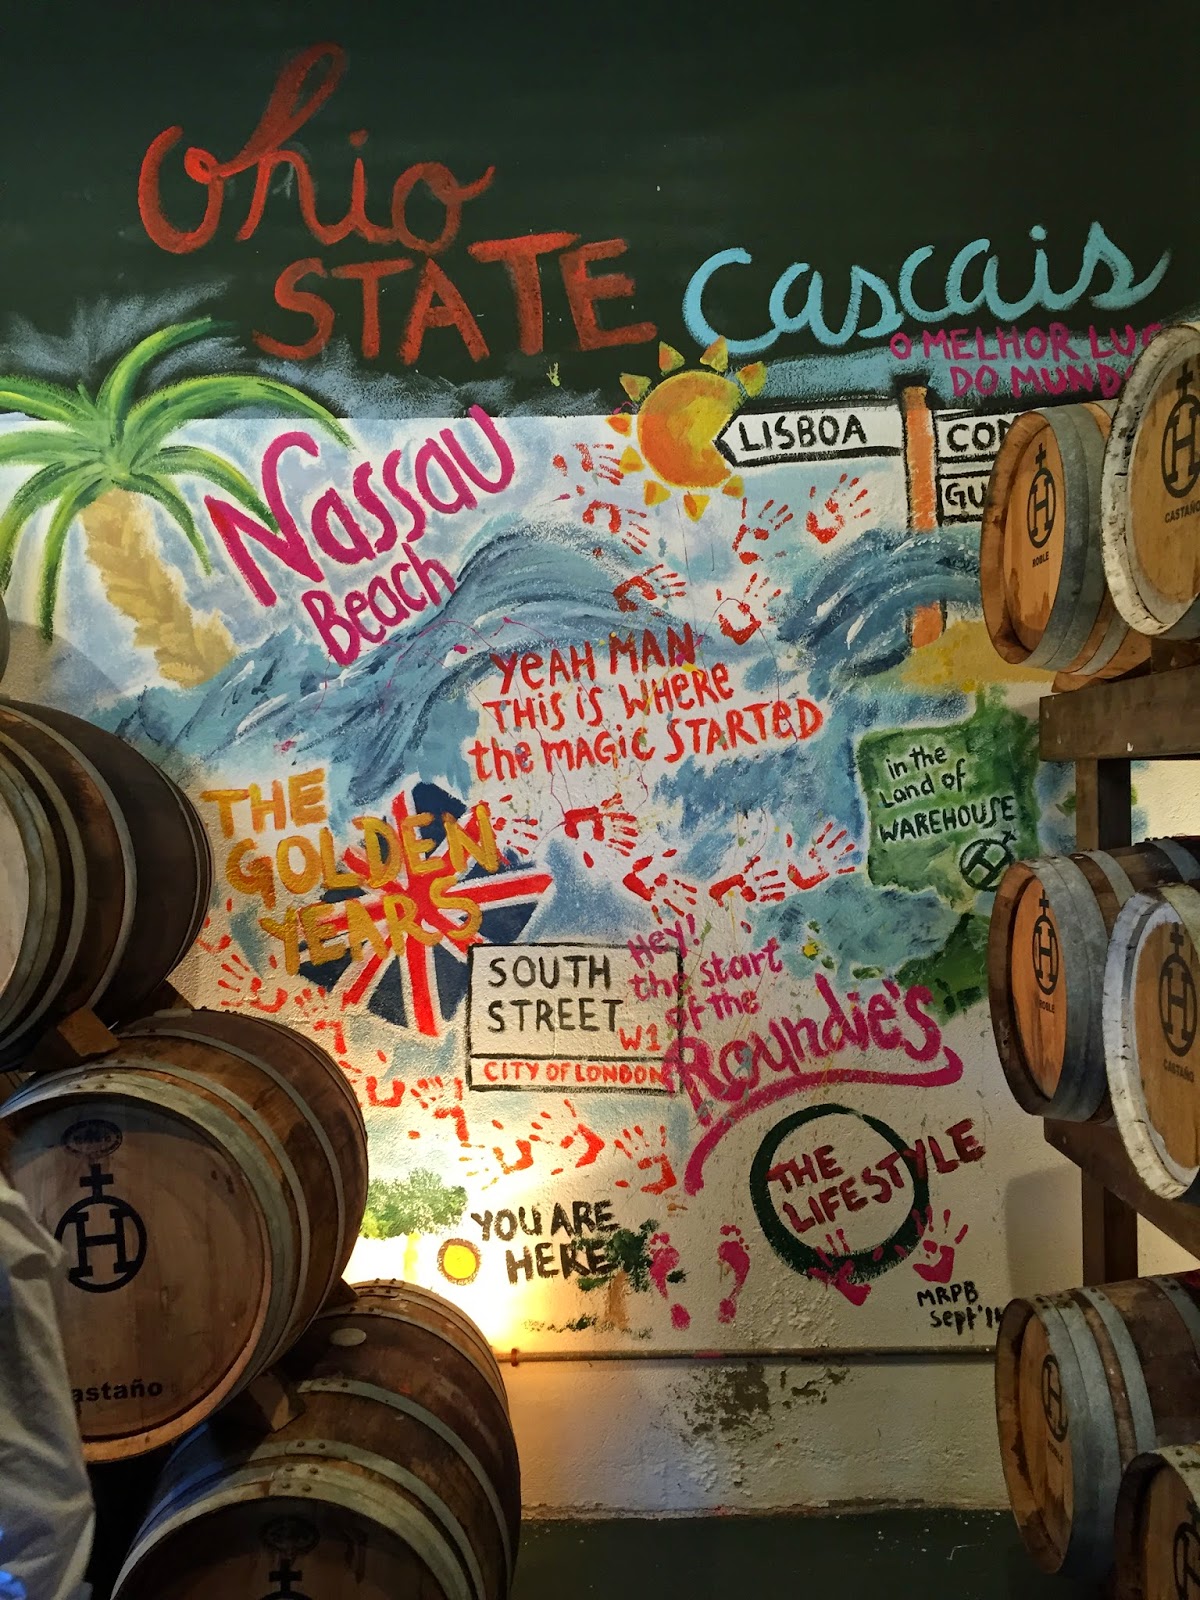 Ohio
STATE
Cascais
O MELHOR
DO
LISBOA
Nassau
Beach
YEAH MAN
THIS IS WHERE
the MAGIC STARTED
in the
Land of
WAREHOUSE
H
THE
GOLDEN
YEARS
SOUTH
STREET
W1
CITY OF LONDON
Hey!
the start
of the
Roundie's
THE
LIFESTYLE
YOU ARE
HERE
MRPB
Sept'
H
ROBLE
H
CASTAÑO
H
ROBLE
H
CASTAÑO
H
H